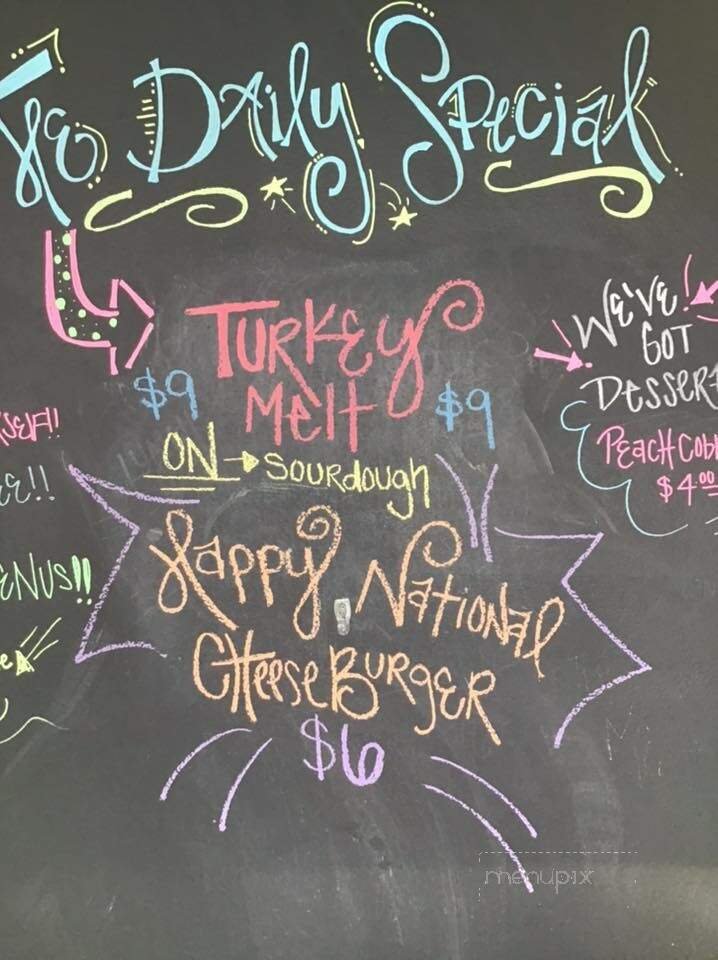 The Daily Special
Turkey
Melt
$9
$9
ON → Sourdough
Happy National
CheeseBurger
$6
We've
Got
Dessert
Peach Cobb
$4.00
enus!!
menupix